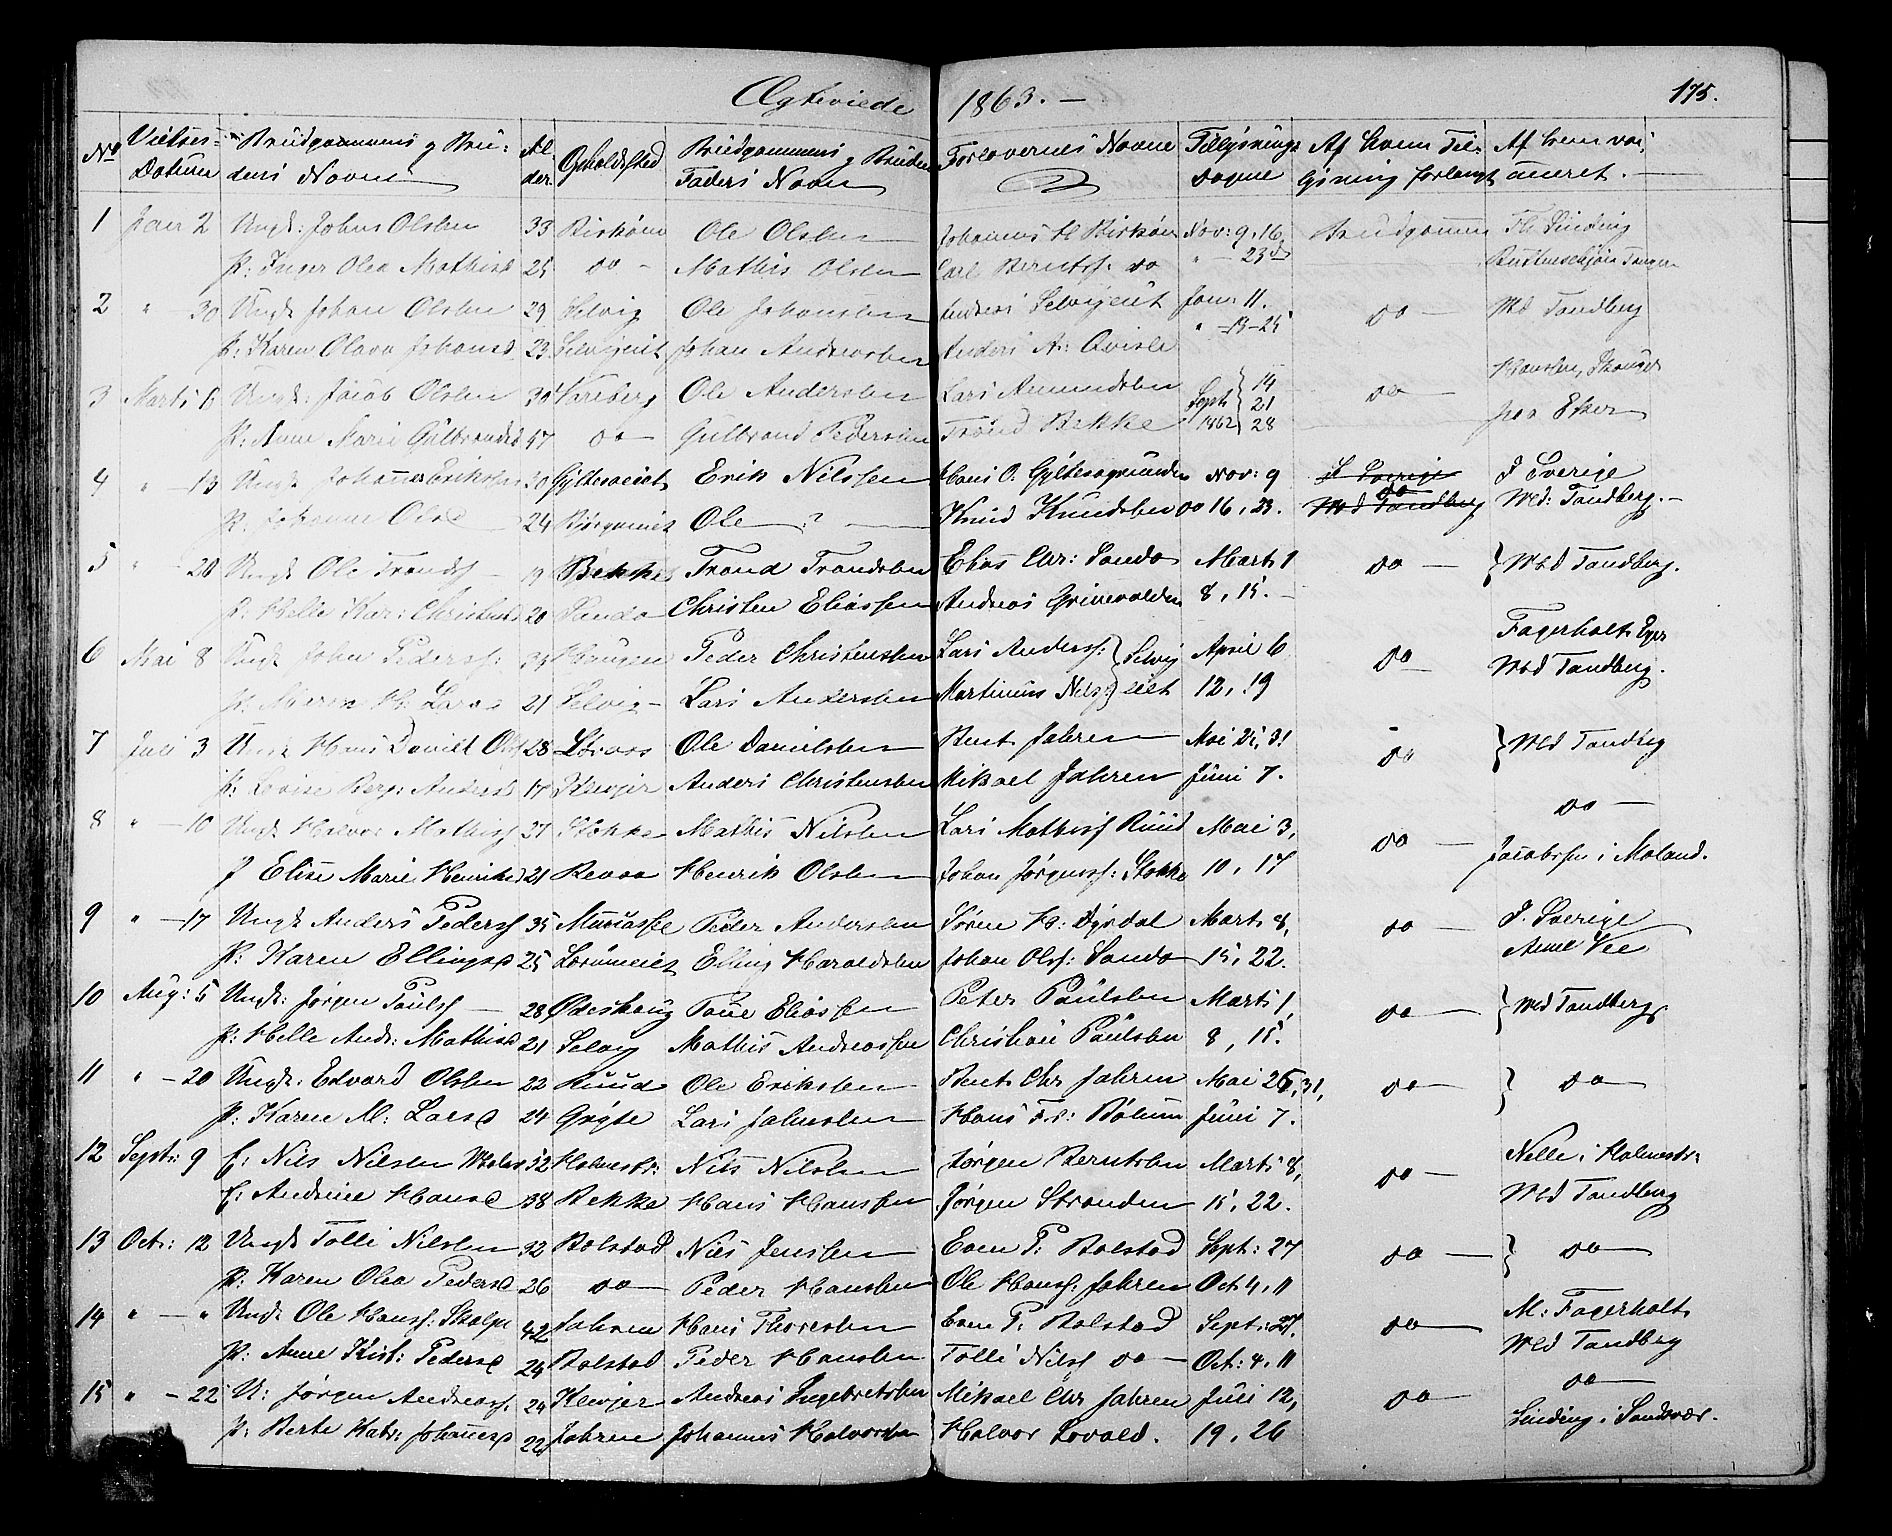 Ægteviede 1863. — 175.
No Vielses- Datum Brudgommens og Bru- dens Navne Al- der. Opholdssted Brudgommens og Brudens Faders Navn Forlovernes Navne Tillysnings Dagene Af hvem Til- lysning forlangt Af hvem vac- cineret. —
1 Janr 2 Ungk: Johns Olsen 33 Ole Olsen Nov: 9, 16, Brudgommen Th Sinding
P: Inger Olea Mathisd 25 do — Mathis Olsen Carl Berntss: do " — 23d
2 " — 30 Ungk Johan Olsen 29 Selvig Ole Johansen Andreas Selvigeiet Janr 11. do — Wed Tandberg
P: Karen Olava Johansd 23 Selvigeiet Johan Andreasen Anders A: Qvisle " — 18 — 25
3 Marts 6 Ungk: Jacob Olsen 30 Vareberg Ole Andersen Lars Amundsen Sept 1862 } 14 21 28 do —
P: Anne Marie Gulbrandsd 47 do — Gulbrand Pedersen Trond Bekke paa Eker
4 " — 13 Ungk Johannes Eriksen 30 Erik Nilssen Hans O. Nov: 9 do I Sverige
P. Johanne Olsd 24 Ole — ? — Knud Knudsen do 16, 23. Wed: Tandberg. —
5 " — 20 Ungk Ole Tronds — 19 Bekke Trond Trondsen Elias Chr: Sando Marts 1 do — } Wed Tandberg.
P: Helle Kar: Christensd 20 Sando Christen Eliassen Andreas Grinevolden 8, 15. —
6 Mai 8 Ungk John Pederss: Haugen Peder Christensen Lars Anderss: } Selvig April 6 do — Fagerholt Eger
P. Maren H: Larsd 21 Selvig — Lars Andersen Martinius Nils: } eiet 12, 19 Wed Tandberg.
7 Juli 3 Ungk Hans Davidt Ols 28 Ole Danielsen Bent Jahren Mai 25, 31 do } Wed Tandbg
P: Lovise Berg: Andersd 17 Klevjer Anders Christensen Mikael Jahren Juni 7.
8 " — 10 Ungk Halvor Mathiss 37 Stokke Mathis Nilsen Lars Mathiss Ruud Mai 3, do — do —
P Elise Marie Henriksd 21 Revaa Henrik Olsen Johan Jørgenss: Stokke 10, 17 Jacobsen i Moland.
9 " — 17 Ungk Anders Pederss 35 Peder Andersen Søren H: Dyrdal Marts 8, do — I. Sverige
P: Karen Ellingsd 25 Elling Haraldsen Johan Olss: Sando 15, 22. Anne Vee
10 Aug: 5 Ungk: Jørgen Paulss — 28 Ødeshaug Paul Eliassen Peter Paulsen Marts 1, do — } Wed Tandberg
P: Helle Andr: Mathisd 21 Selvig Mathis Andreassen Christian Paulsen 8, 15.
11 " — 20 Ungk: Edvard Olsen 22 Ruud Ole Eriksen Bent Chr Jahren Mai 25, 31, do — } do —
P: Karen M: Larsd 24 Grøte Lars Johnsen Hans Fr: Bolum Juni 7.
12 Septr: 9 E: Nils Nilsen 52 Holmestr: Nils Nilsen Jørgen Berntsen Marts 8, do — Nelle i Holmestr:
E: Andrine Hansd 38 Bekke Hans Hanssen Jørgen Stranden 15, 22. Wed Tandberg
13 Oct: 12 Ungk Tolli Nilsen 32 Bolstad Nils Jenssen Even P: Bolstad Sept: 27 do — } do —
P: Karen Olea Pedersd 26 do — Peder Hansen Ole Hanss: Jahren Oct: 4, 11
14 " — " Ungk Ole Hanss: 42 Jahren Hans Thoresen Even P: Bolstad Sept: 27. do — M: Fagerholt
P: Anne Kirst: Pedersd 24 Bolstad Peder Hansen Tolli Nilss do — Oct: 4, 11 Wed Tandberg
15 " — 22 U: Jørgen Andreass: 24 Klevjer Andreas Ingebretsen Mikael Chr Jahren Juli 12, do — do —
P: Berte Katr: Johannesd 22 Jahren Johannes Halvorsen Halvor Lovald. 19, 26 Sinding i Sandsvær.